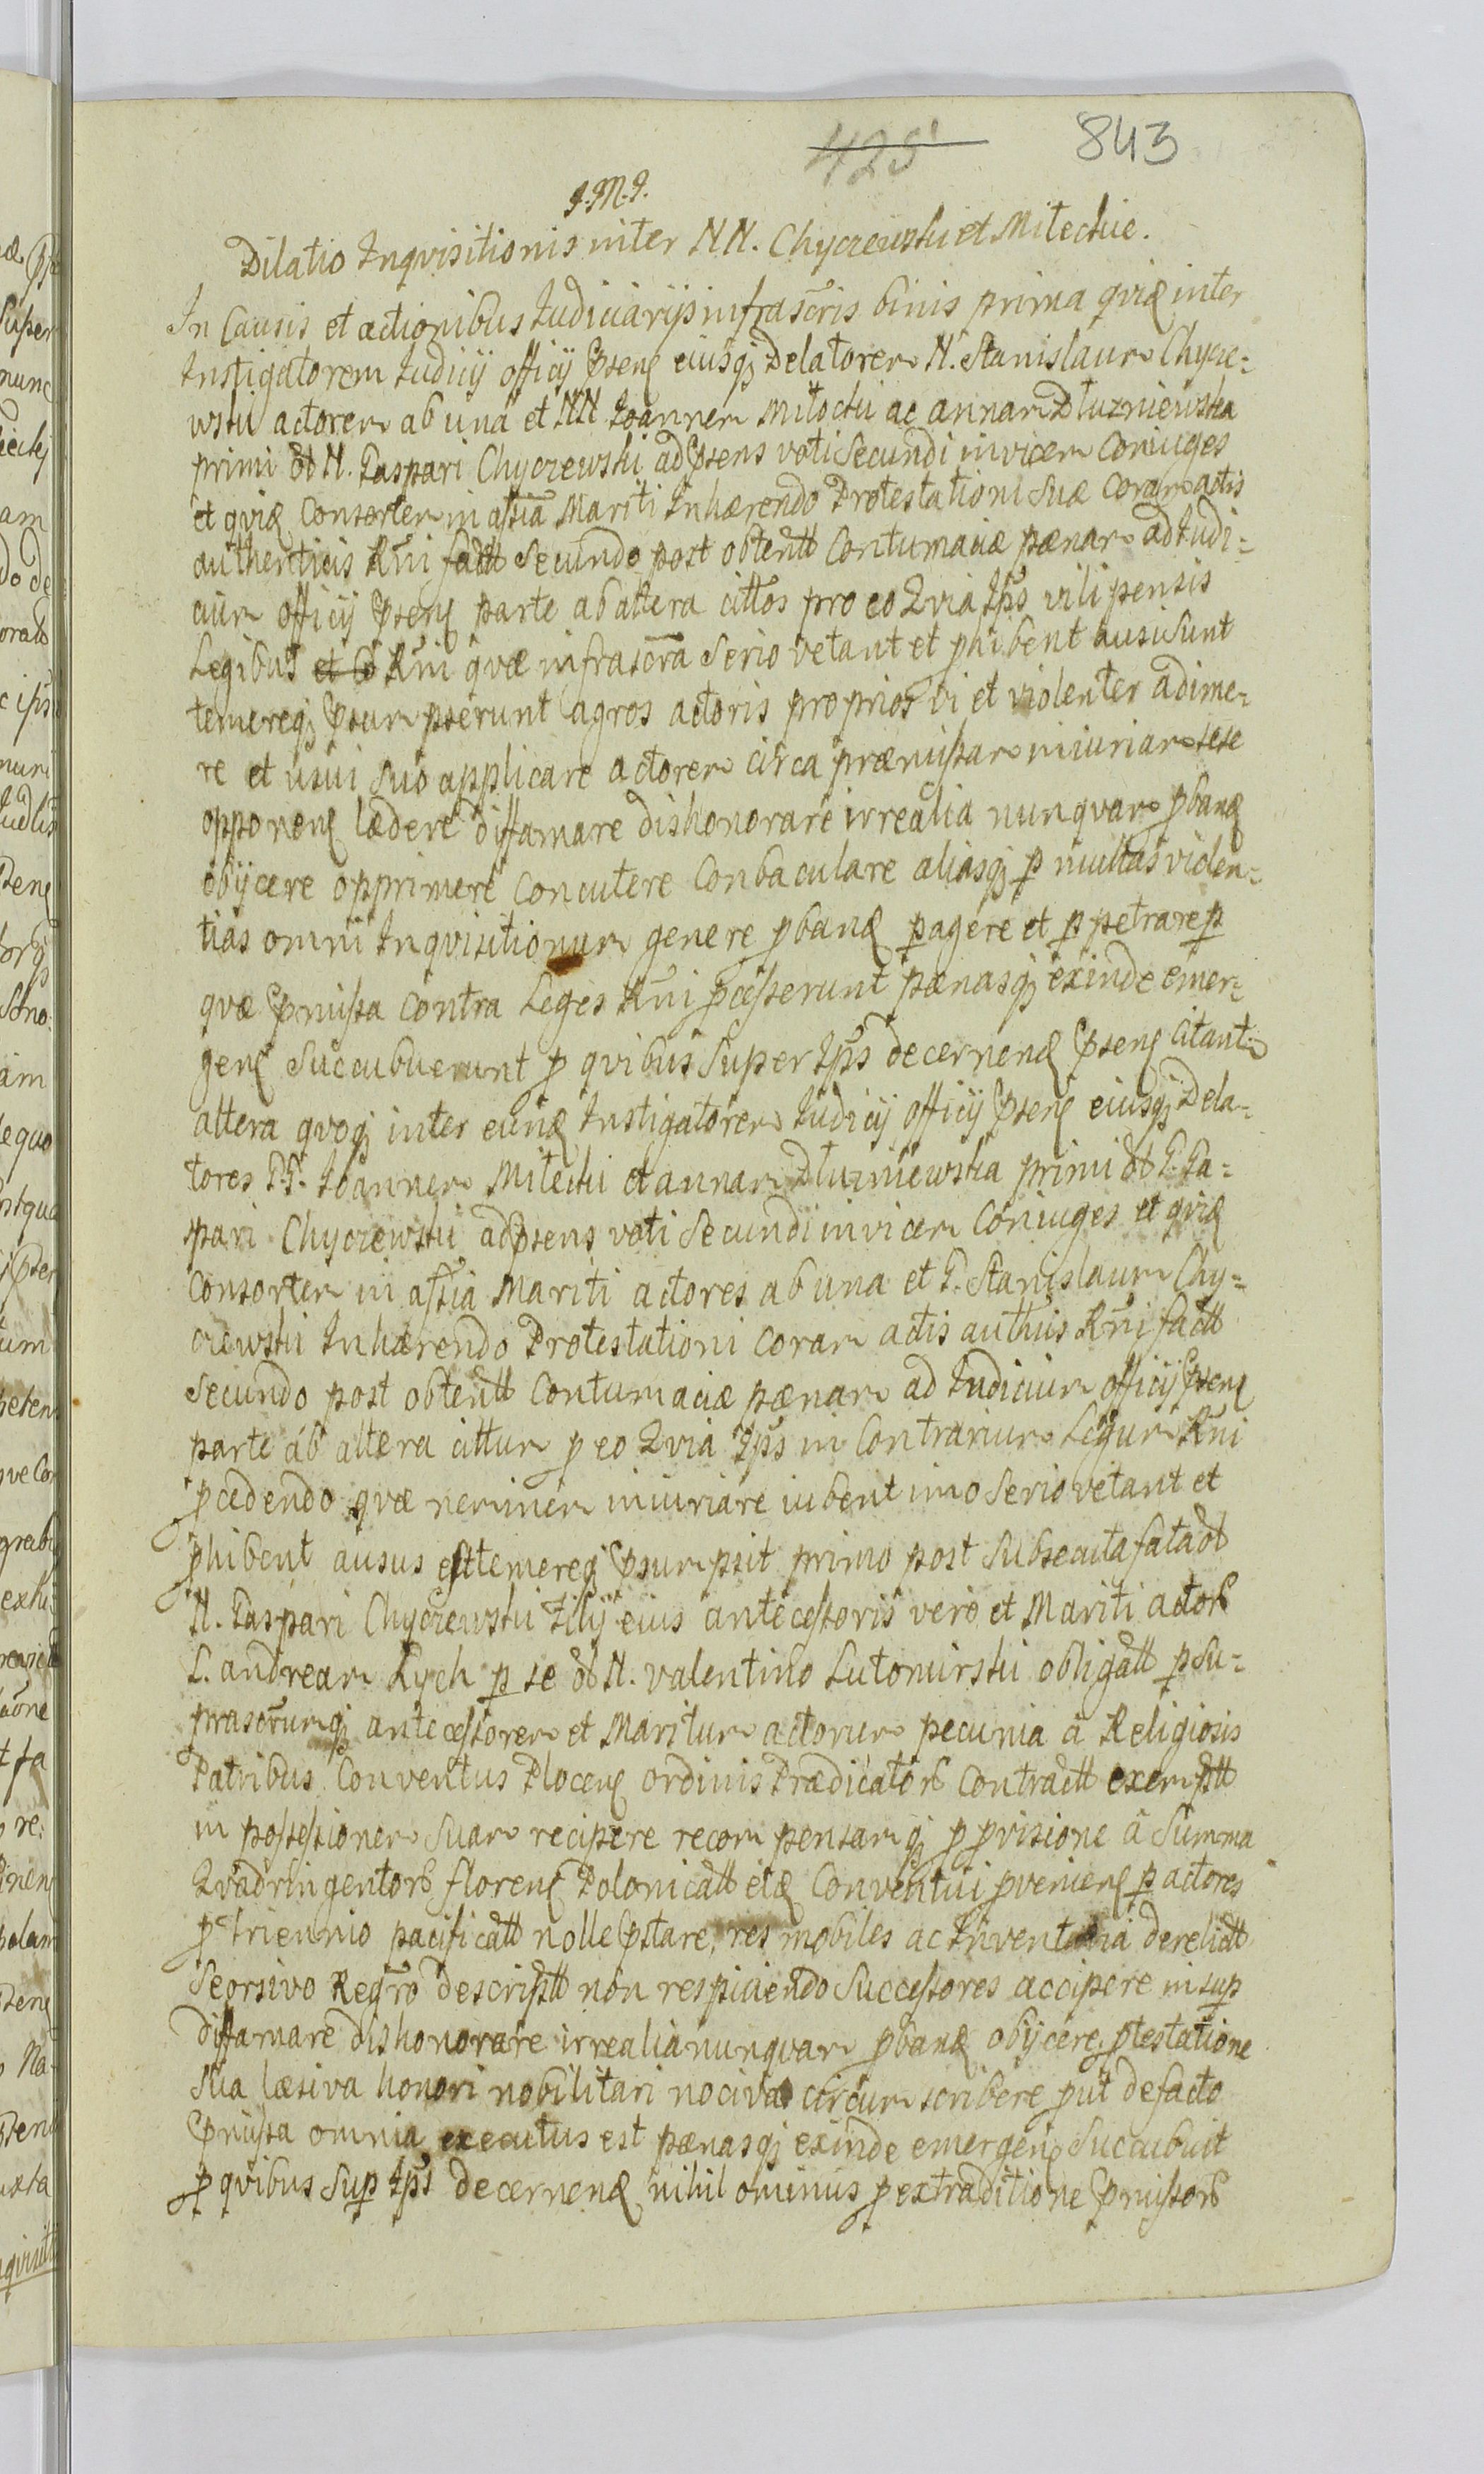 425
843
J.M.J.
Dilatio Inqvisitionis inter N.N. Chyczewski et Mitechie.
In Causis et actionibus Judiciarijs infrascris binis prima qvid inter
Instigatorem Judicij officij pseñ eiusq; Delatorem N. Stanislaum Chycze-
wski actorem ab una et NN Joannem Mitochi ac annam Dłuzniewska
primi olt N. Gaspari Chyczewski ad psens voti Secundi invicem Coniuges
et qvid Consortem in assia Mariti Inhærendo Protestationi Suæ Coram actis
authenticis Rni factt Secundo post obtentt Contumaciæ pænam ad Judi-
cium officij pseñ parte ab altera cittos pro eo Qvia Ips vilipensis
Legibus Rni qvæ infrascra Serio vetant et phibent ausi sunt
temereq; psum pserunt agros actoris proprios vi et violenter adime-
re et usui Suo applicare actorem circa præmissam iniuriam sese
opponeñ lædere diffamare dishonorare irrealia nunqvam pband
obijcere opprimere Concutere Conbaculare aliasq; p multas violen-
tias omni Inqvisitionum genere pband pagere et ppetrare p
qvæ pmissa Contra Leges Rni pcesserunt pænasq; exinde emer-
geñ Succubuerunt p qvibus Super Ips decernend pseñ Citant
altera qvoq; inter eund Instigatorem Judicij officij pseñ eiusq; Dela-
tores G.G. Joannem Mitechi et annam Dłuzniewska primi olt G. Ga-
spari Chyczewski ad psens voti Secundi invicem Coniuges et qvid
Consortem in assia Mariti actores ab una et G. Stanislaum Chy-
czewski Inhærendo Protestationi Coram actis authis Rni factt
Secundo post obtentt Contumaciæ pænam ad Judicium officij pseñ
parte ab altera cittum p eo Qvia Ips in Contrarium Legum Rni
pcedendo qvæ neminem iniuriare iubent imo Serio vetant et
phibent ausus est temereq; psum psit primo post Subsecuta fata olt
N. Gaspari Chyczewski Filij eius antecessoris vero et Mariti actorū
L. andream Rych p se olt N. valentino Lutomirski obligatt p Su-
prascrumq; antecessorem et Maritum actorum pecunia a Religiosis
Patribus Conventus Ploceñ ordinis Prædicatorū Contractt exemptt
in possessionem Suam recipere recompensamq; p pvisione a Summa
Qvadringentorū floreñ Polonicatt eid Conventui pvenieñ p actores
p triennio pacificatt nolle pstare, res mobiles ac Inventaria derelictt
Seorsivo Regro descriptt non respiciendo Successores accipere insup
diffamare dishonorare irrealia nunqvam pband obijcere, ptestatione
Sua læsiva honori nobilitari nociva circumscribere put defacto
pmissa omnia executus est pænasq; exinde emergeñ Succubuit
p qvibus Sup Ips decernend nihilominus p extraditione pmissorū